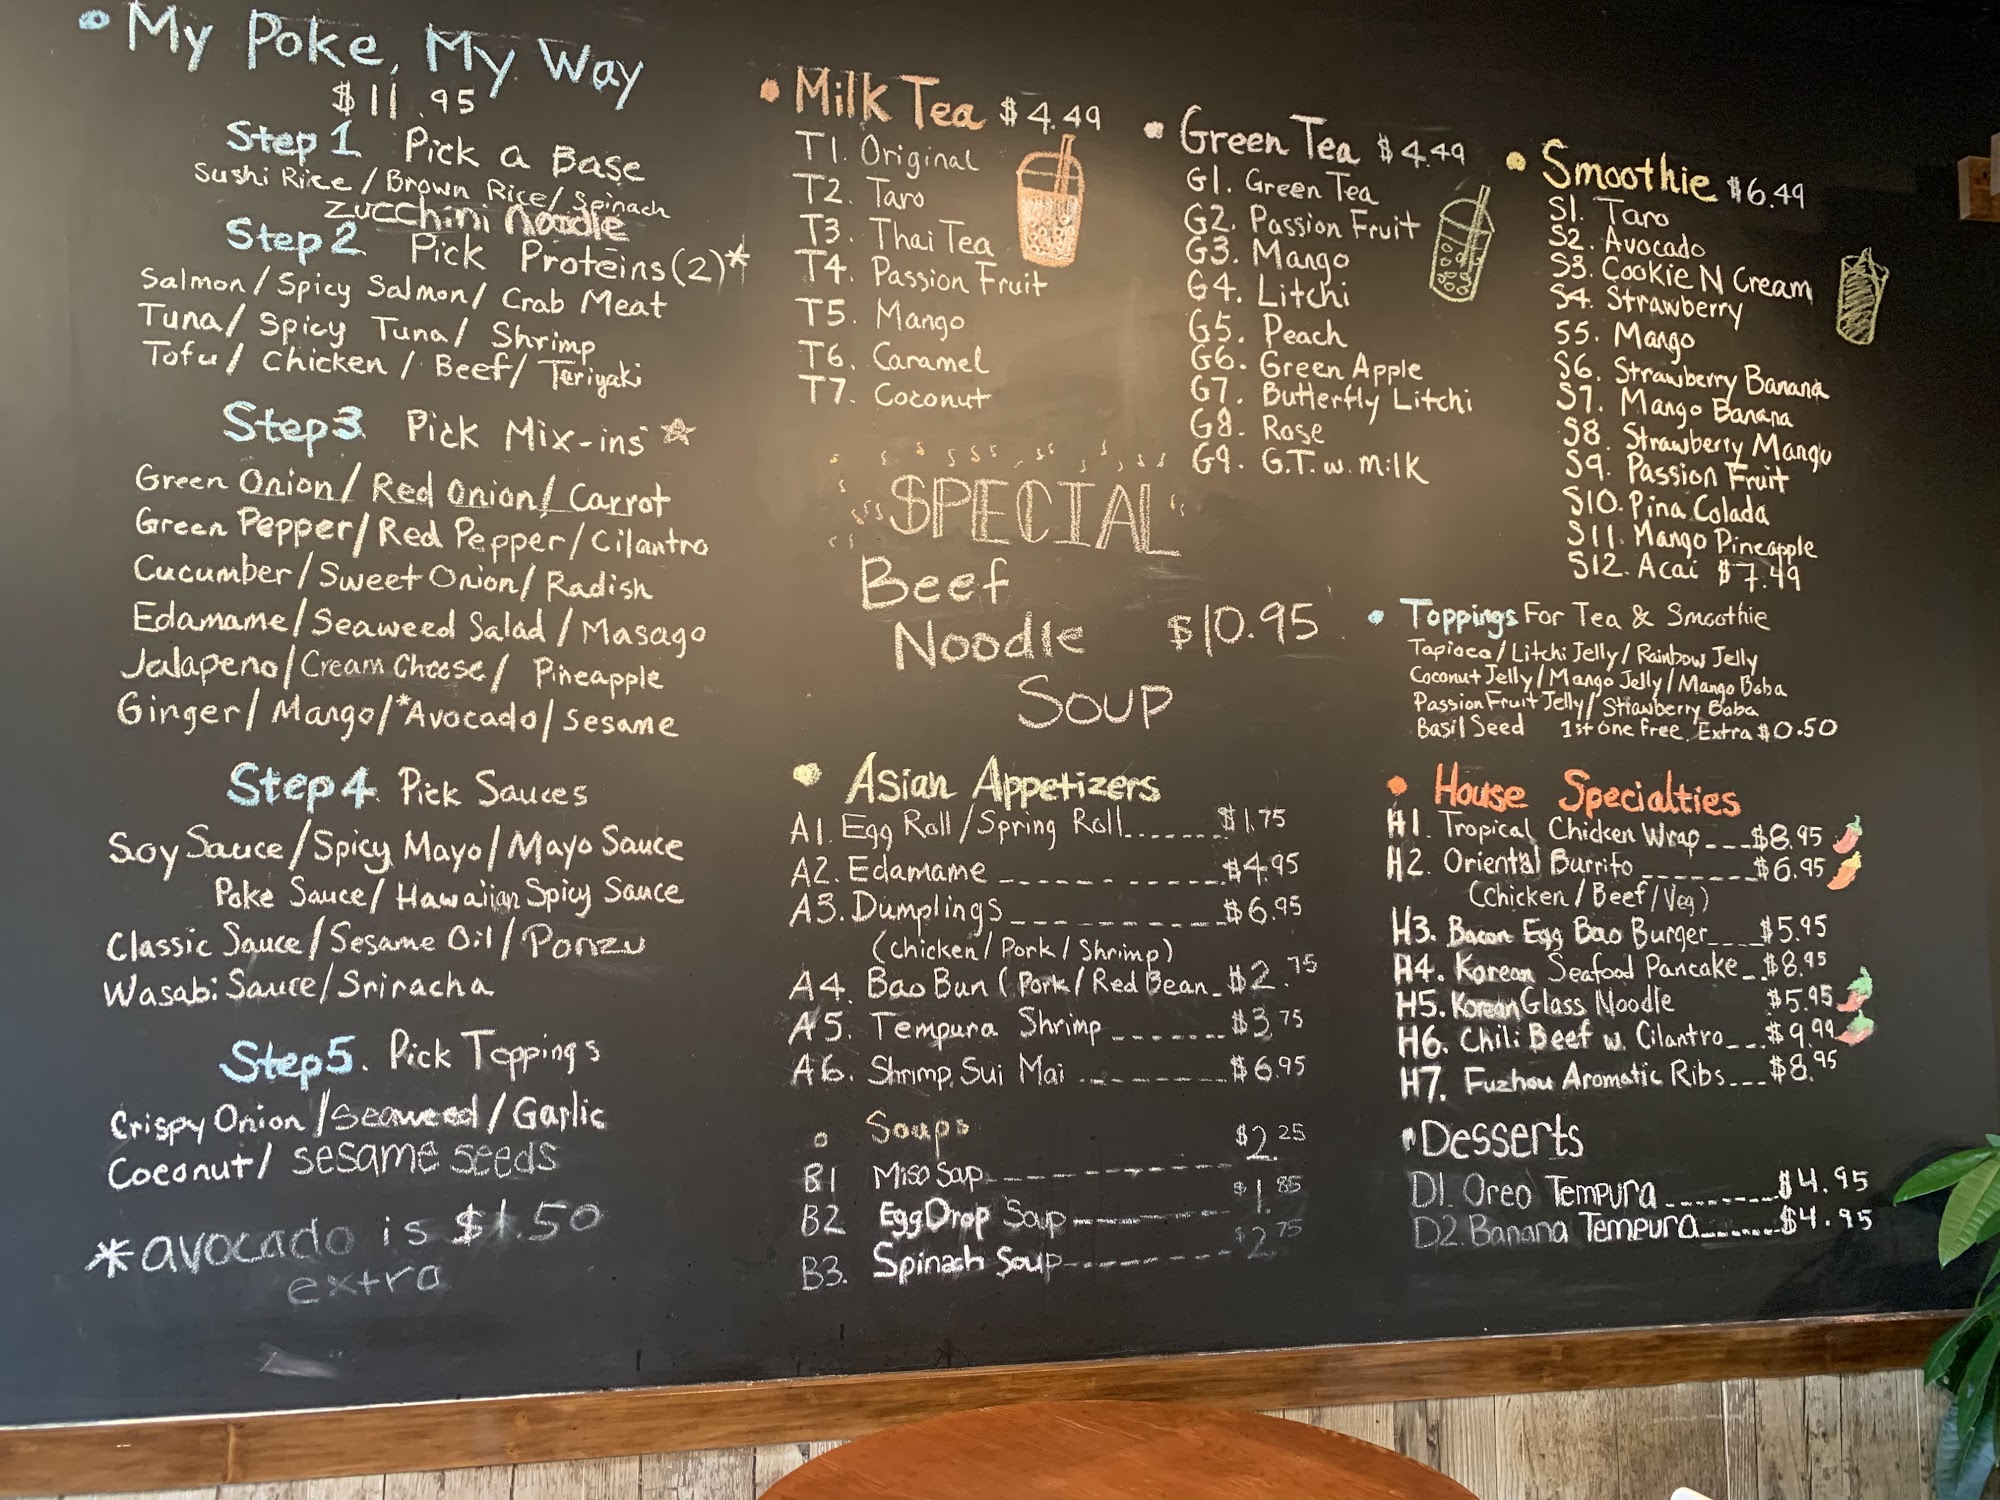 My Poke, My Way
$11.95
Step 1 Pick a Base
Sushi Rice / Brown Rice / Spinach
Zucchini Noodle
Step 2 Pick Proteins (2)*
Salmon / Spicy Salmon / Crab Meat
Tuna / Spicy Tuna / Shrimp
Tofu / Chicken / Beef / Teriyaki
Step 3 Pick Mix-ins
Green Onion / Red Onion / Carrot
Green Pepper / Red Pepper / Cilantro
Cucumber / Sweet Onion / Radish
Edamame / Seaweed Salad / Masago
Jalapeno / Cream Cheese / Pineapple
Ginger / Mango / *Avocado / Sesame
Step 4. Pick Sauces
Soy Sauce / Spicy Mayo / Mayo Sauce
Poke Sauce / Hawaiian Spicy Sauce
Classic Sauce / Sesame Oil / Ponzu
Wasabi Sauce / Sriracha
Step 5. Pick Toppings
Crispy Onion / Seaweed / Garlic
Coconut / sesame seeds
*avocado is $1.50
extra
Milk Tea $4.49
T1. Original
T2. Taro
T3. Thai Tea
T4. Passion Fruit
T5. Mango
T6. Caramel
T7. Coconut
Green Tea $4.49
G1. Green Tea
G2. Passion Fruit
G3. Mango
G4. Litchi
G5. Peach
G6. Green Apple
G7. Butterfly Litchi
G8. Rose
G9. G.T. w. milk
Smoothie $6.49
S1. Taro
S2. Avocado
S3. Cookie N Cream
S4. Strawberry
S5. Mango
S6. Strawberry Banana
S7. Mango Banana
S8. Strawberry Mango
S9. Passion Fruit
S10. Pina Colada
S11. Mango Pineapple
S12. Acai $7.49
SPECIAL
Beef
Noodle $10.95
Soup
Toppings For Tea & Smoothie
Tapioca / Litchi Jelly / Rainbow Jelly
Coconut Jelly / Mango Jelly / Mango Boba
Passion Fruit Jelly / Strawberry Boba
Basil Seed 1st one free, Extra $0.50
Asian Appetizers
A1. Egg Roll / Spring Roll $1.75
A2. Edamame $4.95
A3. Dumplings $6.95
(Chicken / Pork / Shrimp)
A4. Bao Bun (Pork / Red Bean $2.75
A5. Tempura Shrimp $3.75
A6. Shrimp Sui Mai $6.95
Soups
B1 Miso Soup $2.25
B2 Egg Drop Soup $1.85
B3. Spinach Soup $2.75
House Specialties
H1. Tropical Chicken Wrap $8.95
H2. Oriental Burrito $6.95
(Chicken / Beef / Veg)
H3. Bacon Egg Bao Burger $5.95
H4. Korean Seafood Pancake $8.95
H5. Korean Glass Noodle $5.95
H6. Chili Beef w. Cilantro $9.99
H7. Fuzhou Aromatic Ribs $8.95
Desserts
D1. Oreo Tempura $4.95
D2. Banana Tempura $4.95